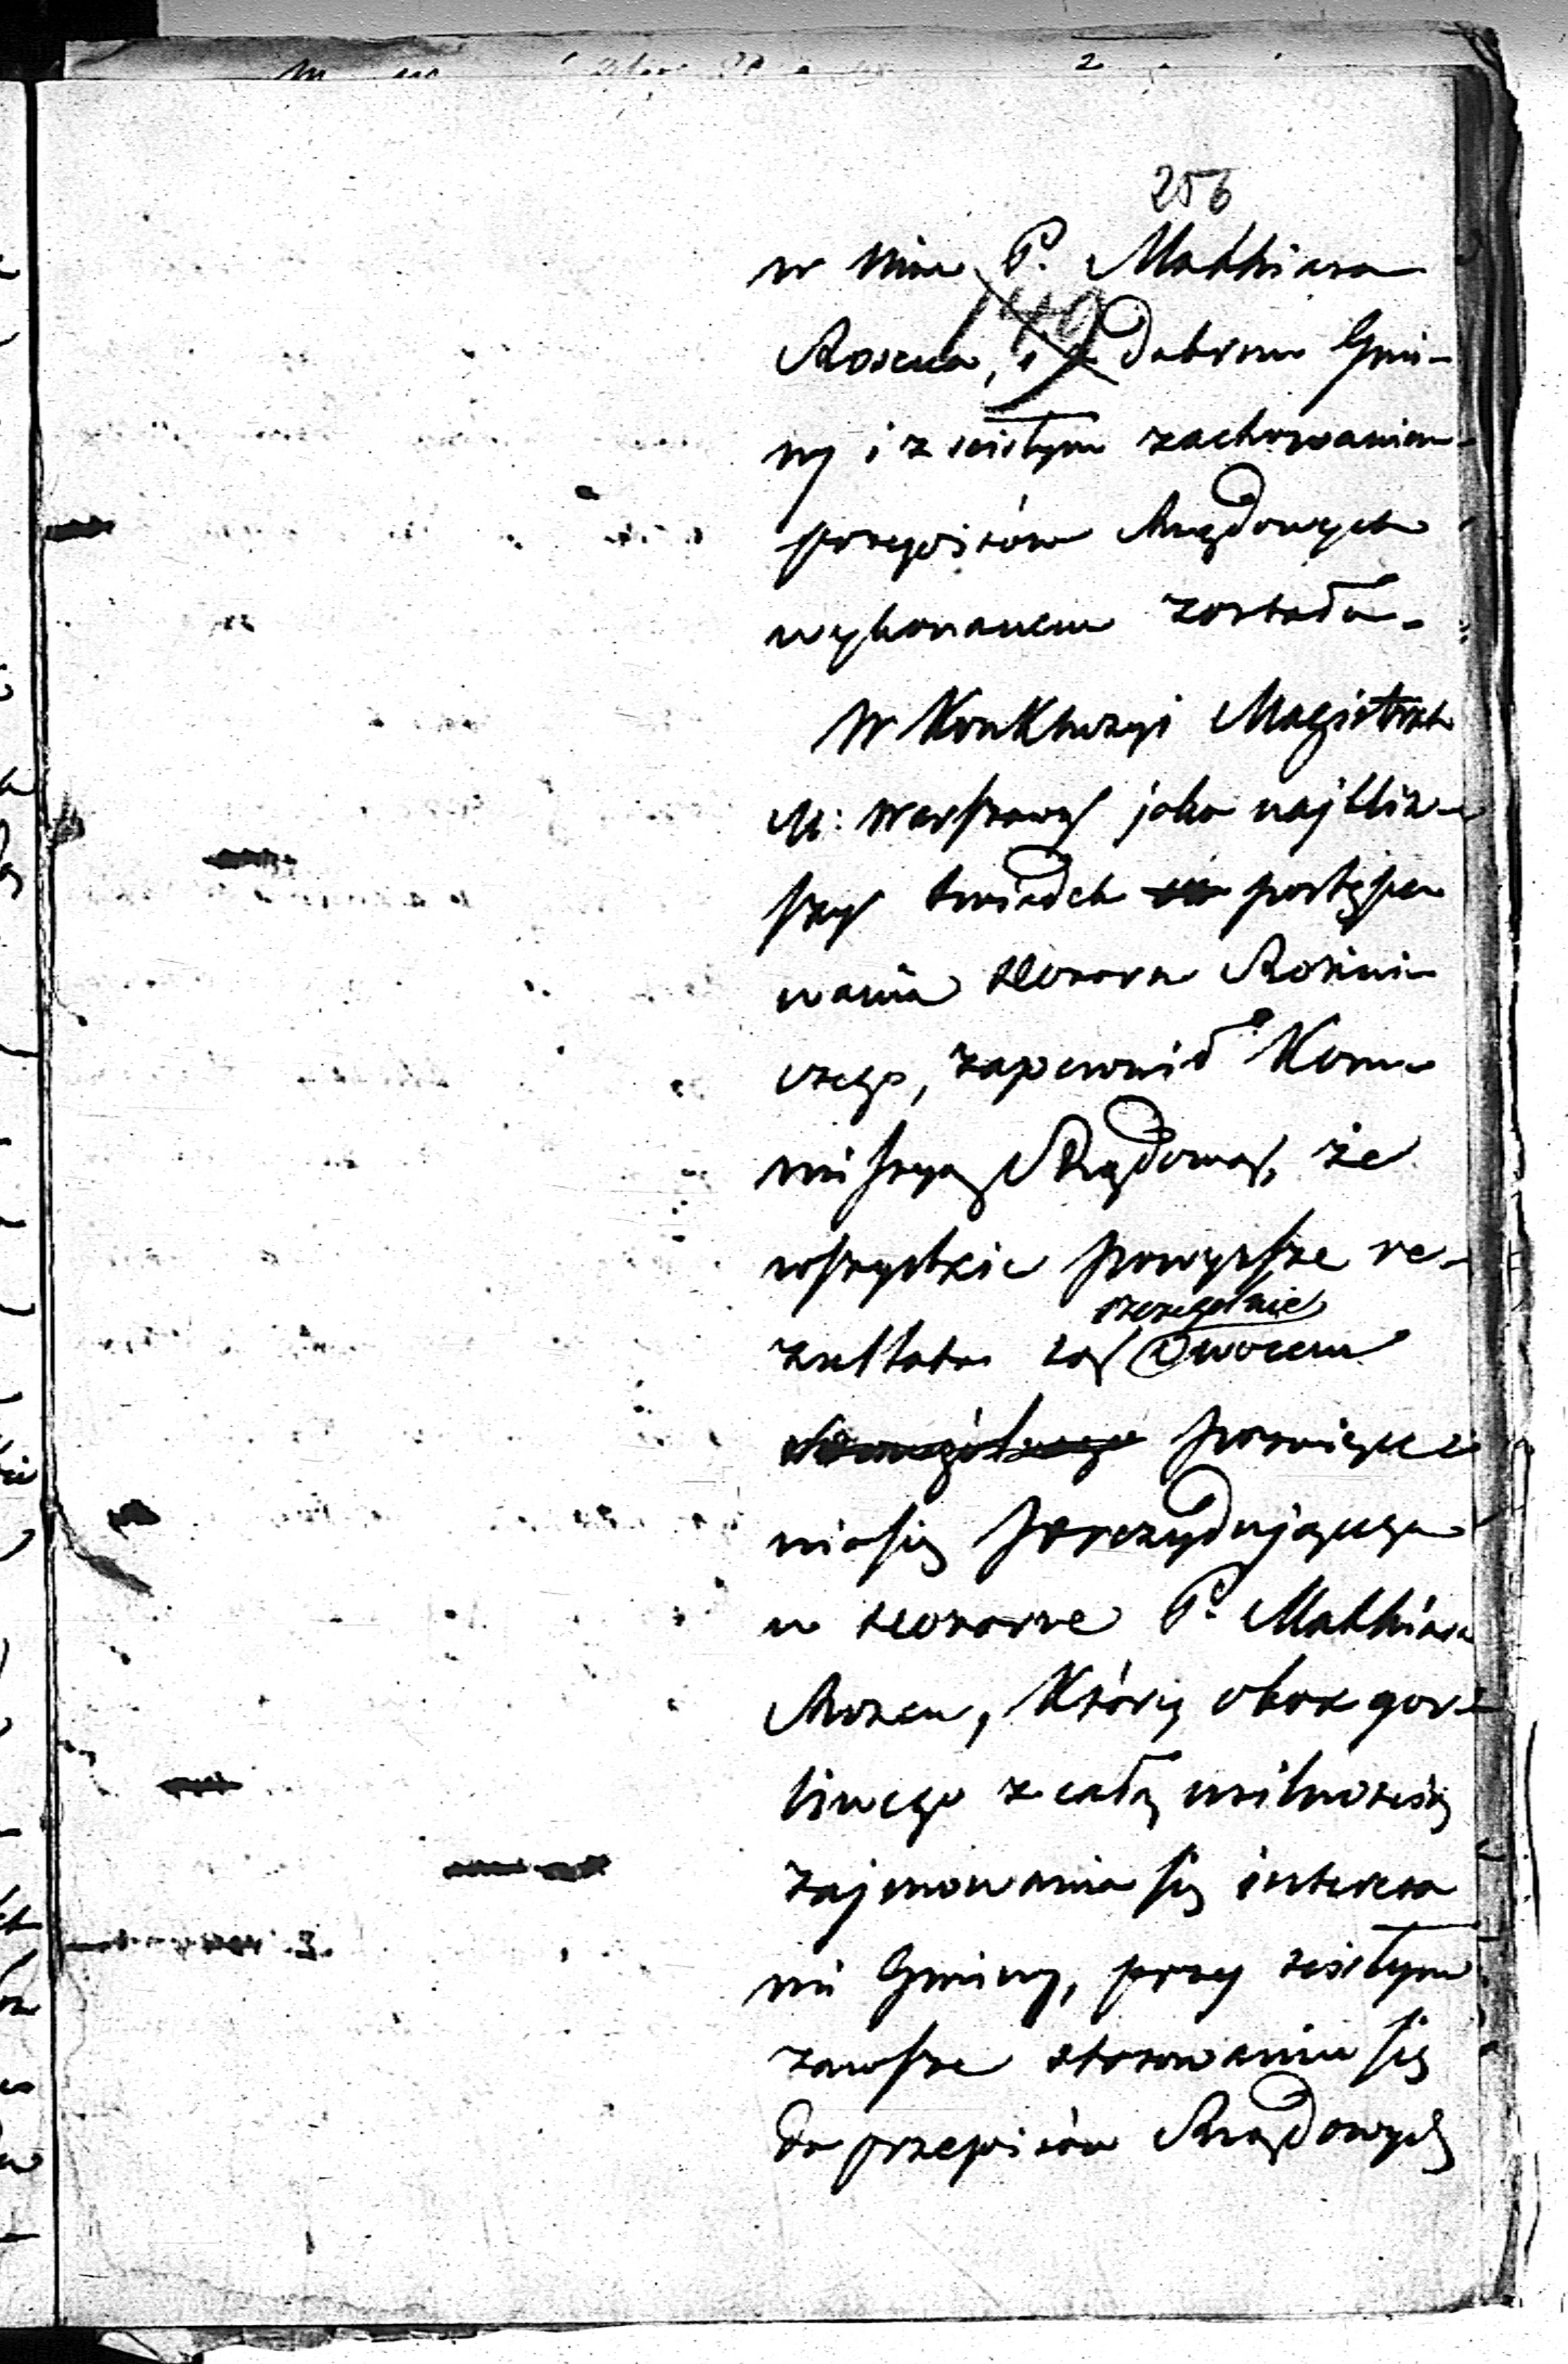 256
w nim P. Mathiasa
149
Rosena, i z dobrem Gmi-
ny i z scisłym zachowaniem
przepisów Rządowych
wykonanem zostało.
W Konkluzyi Magistrat
M: Warszawy jako najbliż-
szy świadek postępo
wania Dozoru Bożni
czego, zapewnić Kom
missyą Rządową, że
wszystkie powyższe re-
szczególnie
zultata są owocem
poświęce
nia się prezydującego
w Dozorze P. Mathiasa
Rosen, Który obok gor
liwego z całą usilnością
zajmowania się interesa
mi Gminy, przy scisłym
zawsze stosowaniu się
do przepisów Rządowych